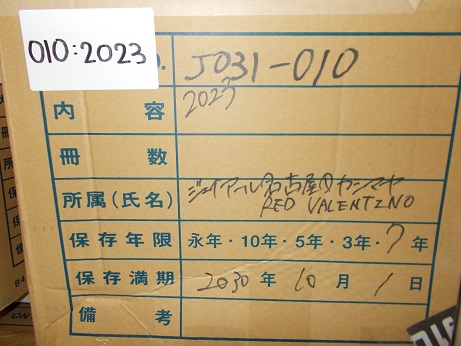 010:2023
o. J031-010
内容 2023
冊数
所属(氏名) ジェイアール名古屋タカシマヤ
RED VALENTINO
保存年限 永年・10年・5年・3年・7年
保存満期 2030年10月1日
備考